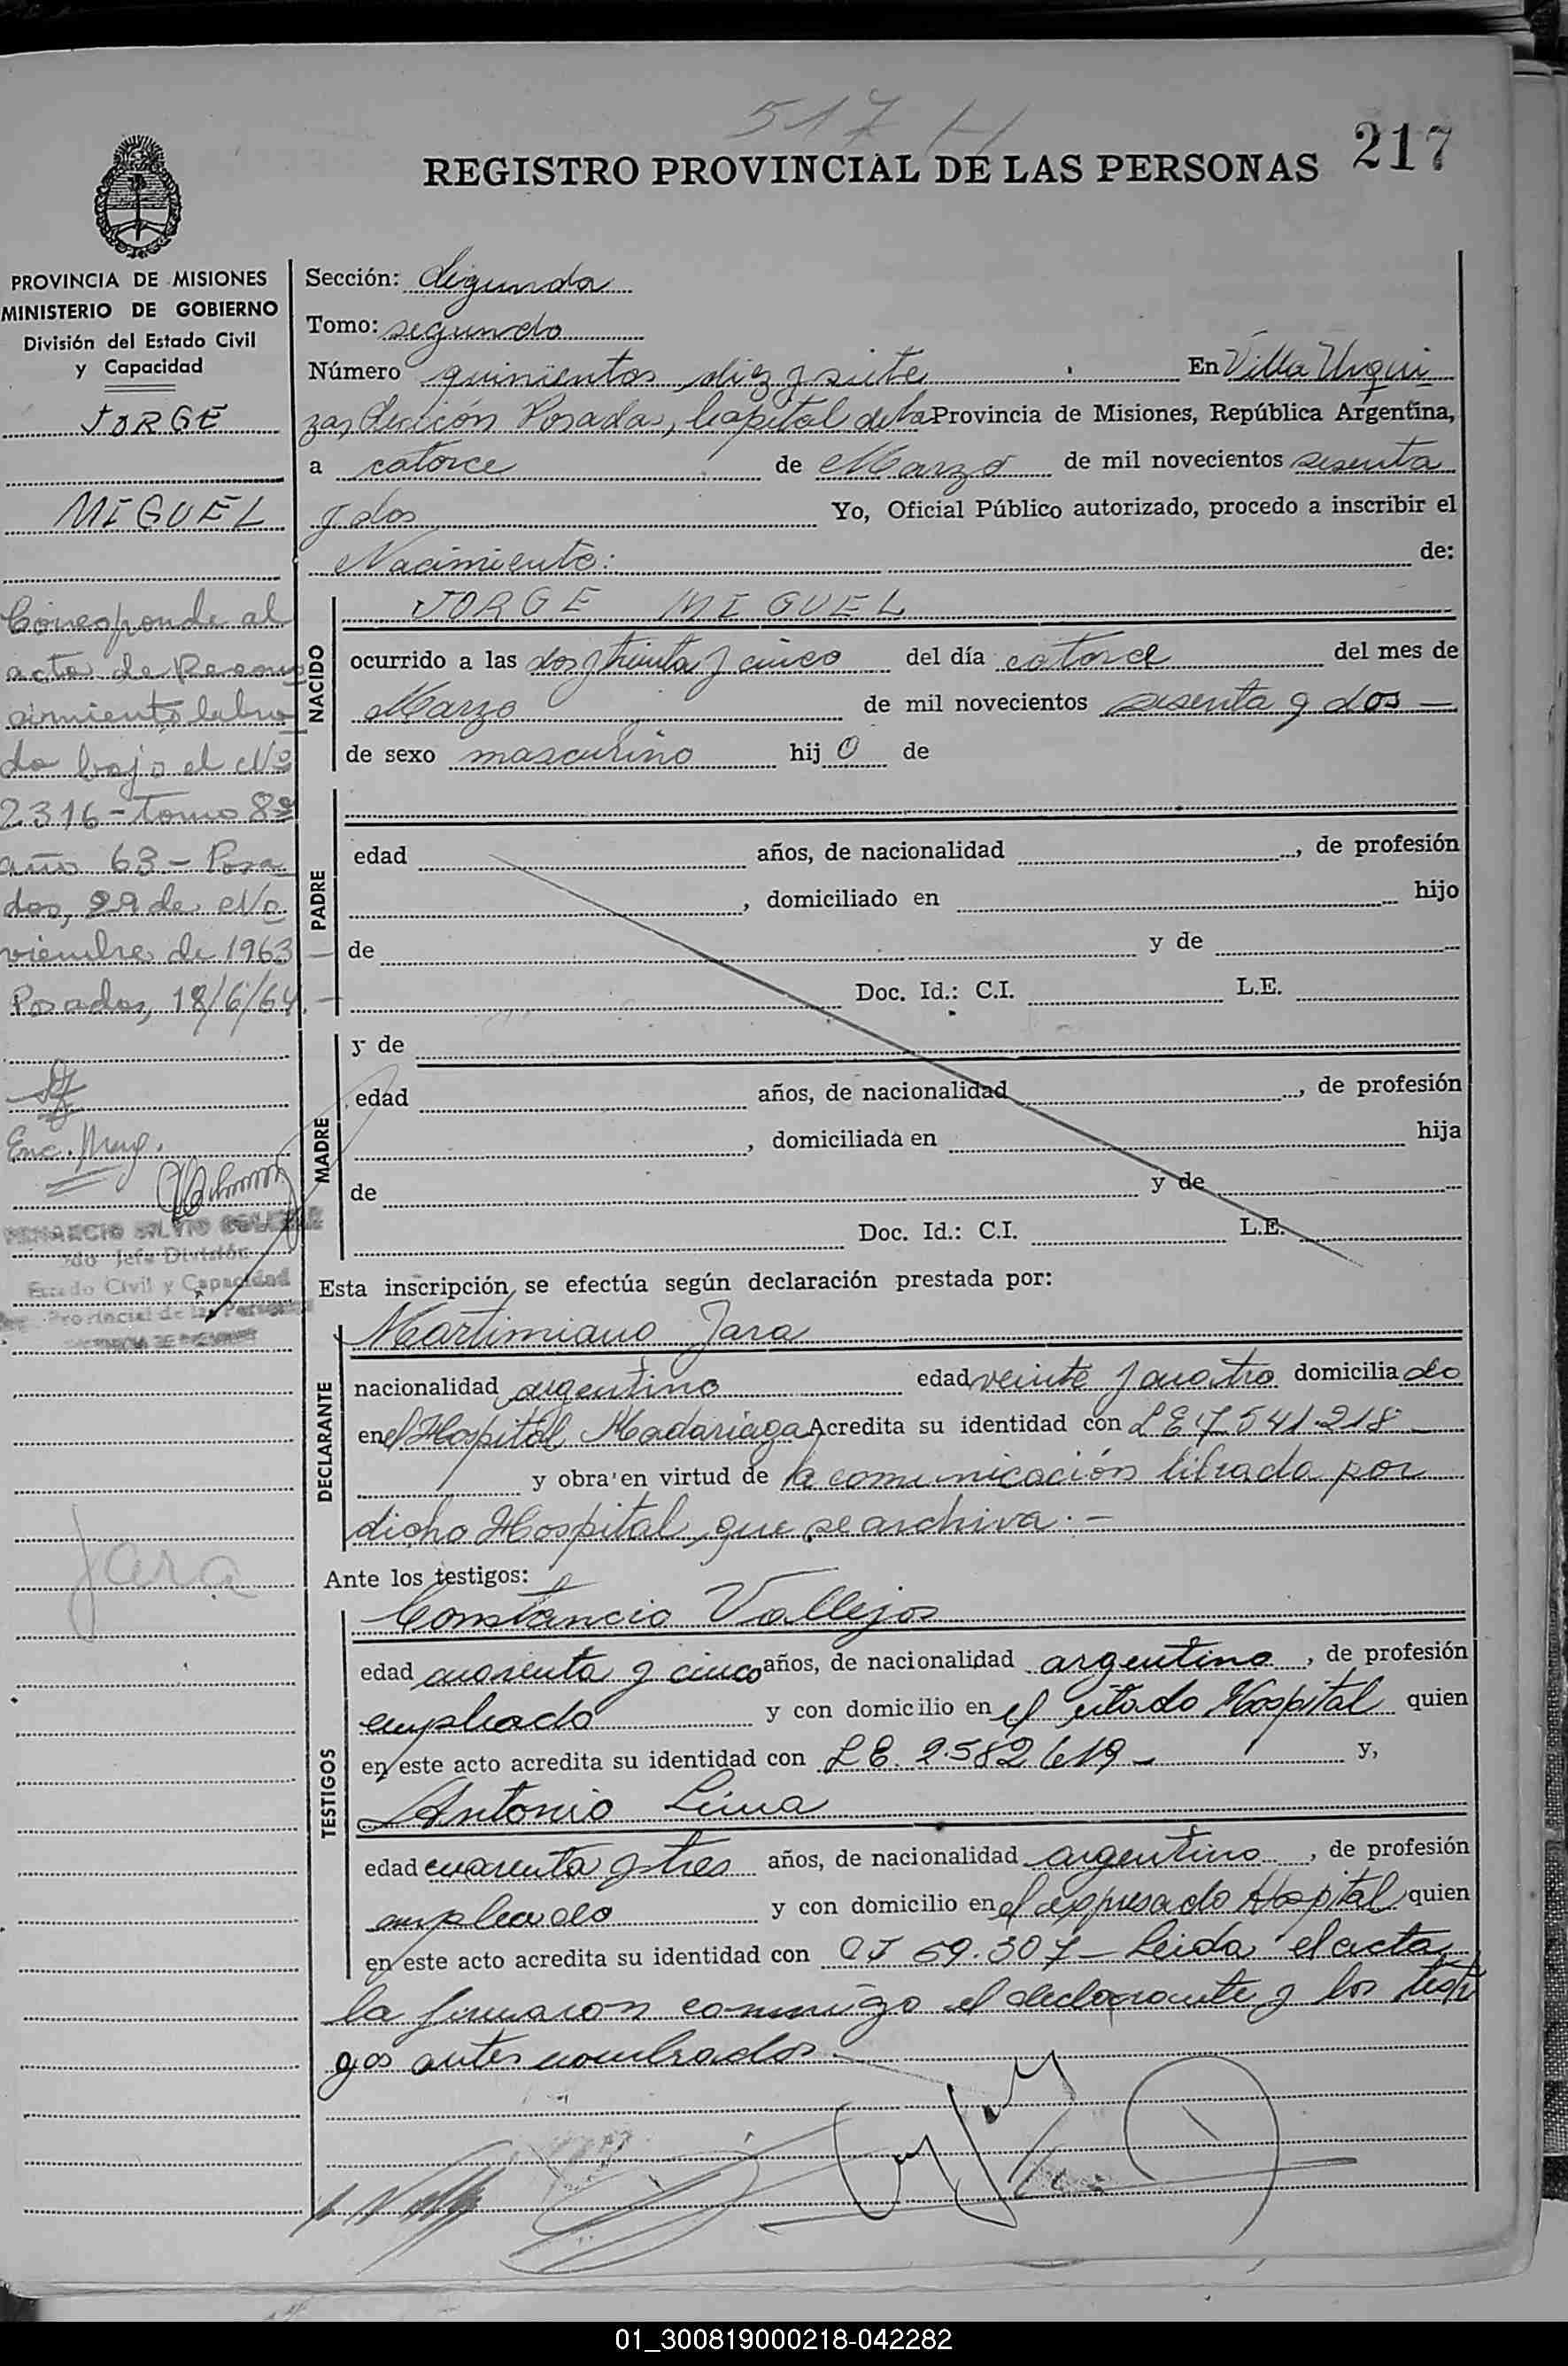 517 H
REGISTRO PROVINCIAL DE LAS PERSONAS 217
PROVINCIA DE MISIONES
MINISTERIO DE GOBIERNO
División del Estado Civil
y Capacidad
JORGE
MIGUEL
Corresponde al
acta de Recono
simiento labra
da bajo el Nº
2316 - tomo 8º
año 63 - Posa
das, 29 de No
viembre de 1963
Posadas, 18/6/64
Enc.
2do Jefe División
Estado Civil y Capacidad
Provincial de las Personas
Jara
Sección: Segunda
Tomo: segundo
Número quinientos diez y siete En Villa Urqui
za, Sección Posadas, Capital de la Provincia de Misiones, República Argentina,
a catorce de Marzo de mil novecientos sesenta
y dos Yo, Oficial Público autorizado, procedo a inscribir el
Nacimiento: de:
NACIDO
JORGE MIGUEL
ocurrido a las dos y treinta y cinco del día catorce del mes de
Marzo de mil novecientos sesenta y dos —
de sexo masculino hijo de
PADRE
edad años, de nacionalidad , de profesión
, domiciliado en hijo
de y de
Doc. Id.: C.I. L.E.
MADRE
y de
edad años, de nacionalidad , de profesión
, domiciliada en hija
de y de
Doc. Id.: C.I. L.E.
Esta inscripción, se efectúa según declaración prestada por:
DECLARANTE
Martimiano Jara
nacionalidad argentino edad veinte y cuatro domiciliado
en el Hospital Madariaga Acredita su identidad con L E 7.541.218 —
y obra en virtud de la comunicación librada por
dicho Hospital, que se archiva. —
Ante los testigos:
TESTIGOS
Constancio Vallejos
edad cuarenta y cinco años, de nacionalidad argentino, de profesión
empleado y con domicilio en el citado Hospital quien
en este acto acredita su identidad con L E. 2.582.619 — y,
Antonio Leiva
edad cuarenta y tres años, de nacionalidad argentino, de profesión
empleado y con domicilio en el expresado Hospital quien
en este acto acredita su identidad con C I 69.307 — Leída el acta,
la firmaron conmigo el declarante y los testi
gos antes nombrados.
01_300819000218-042282